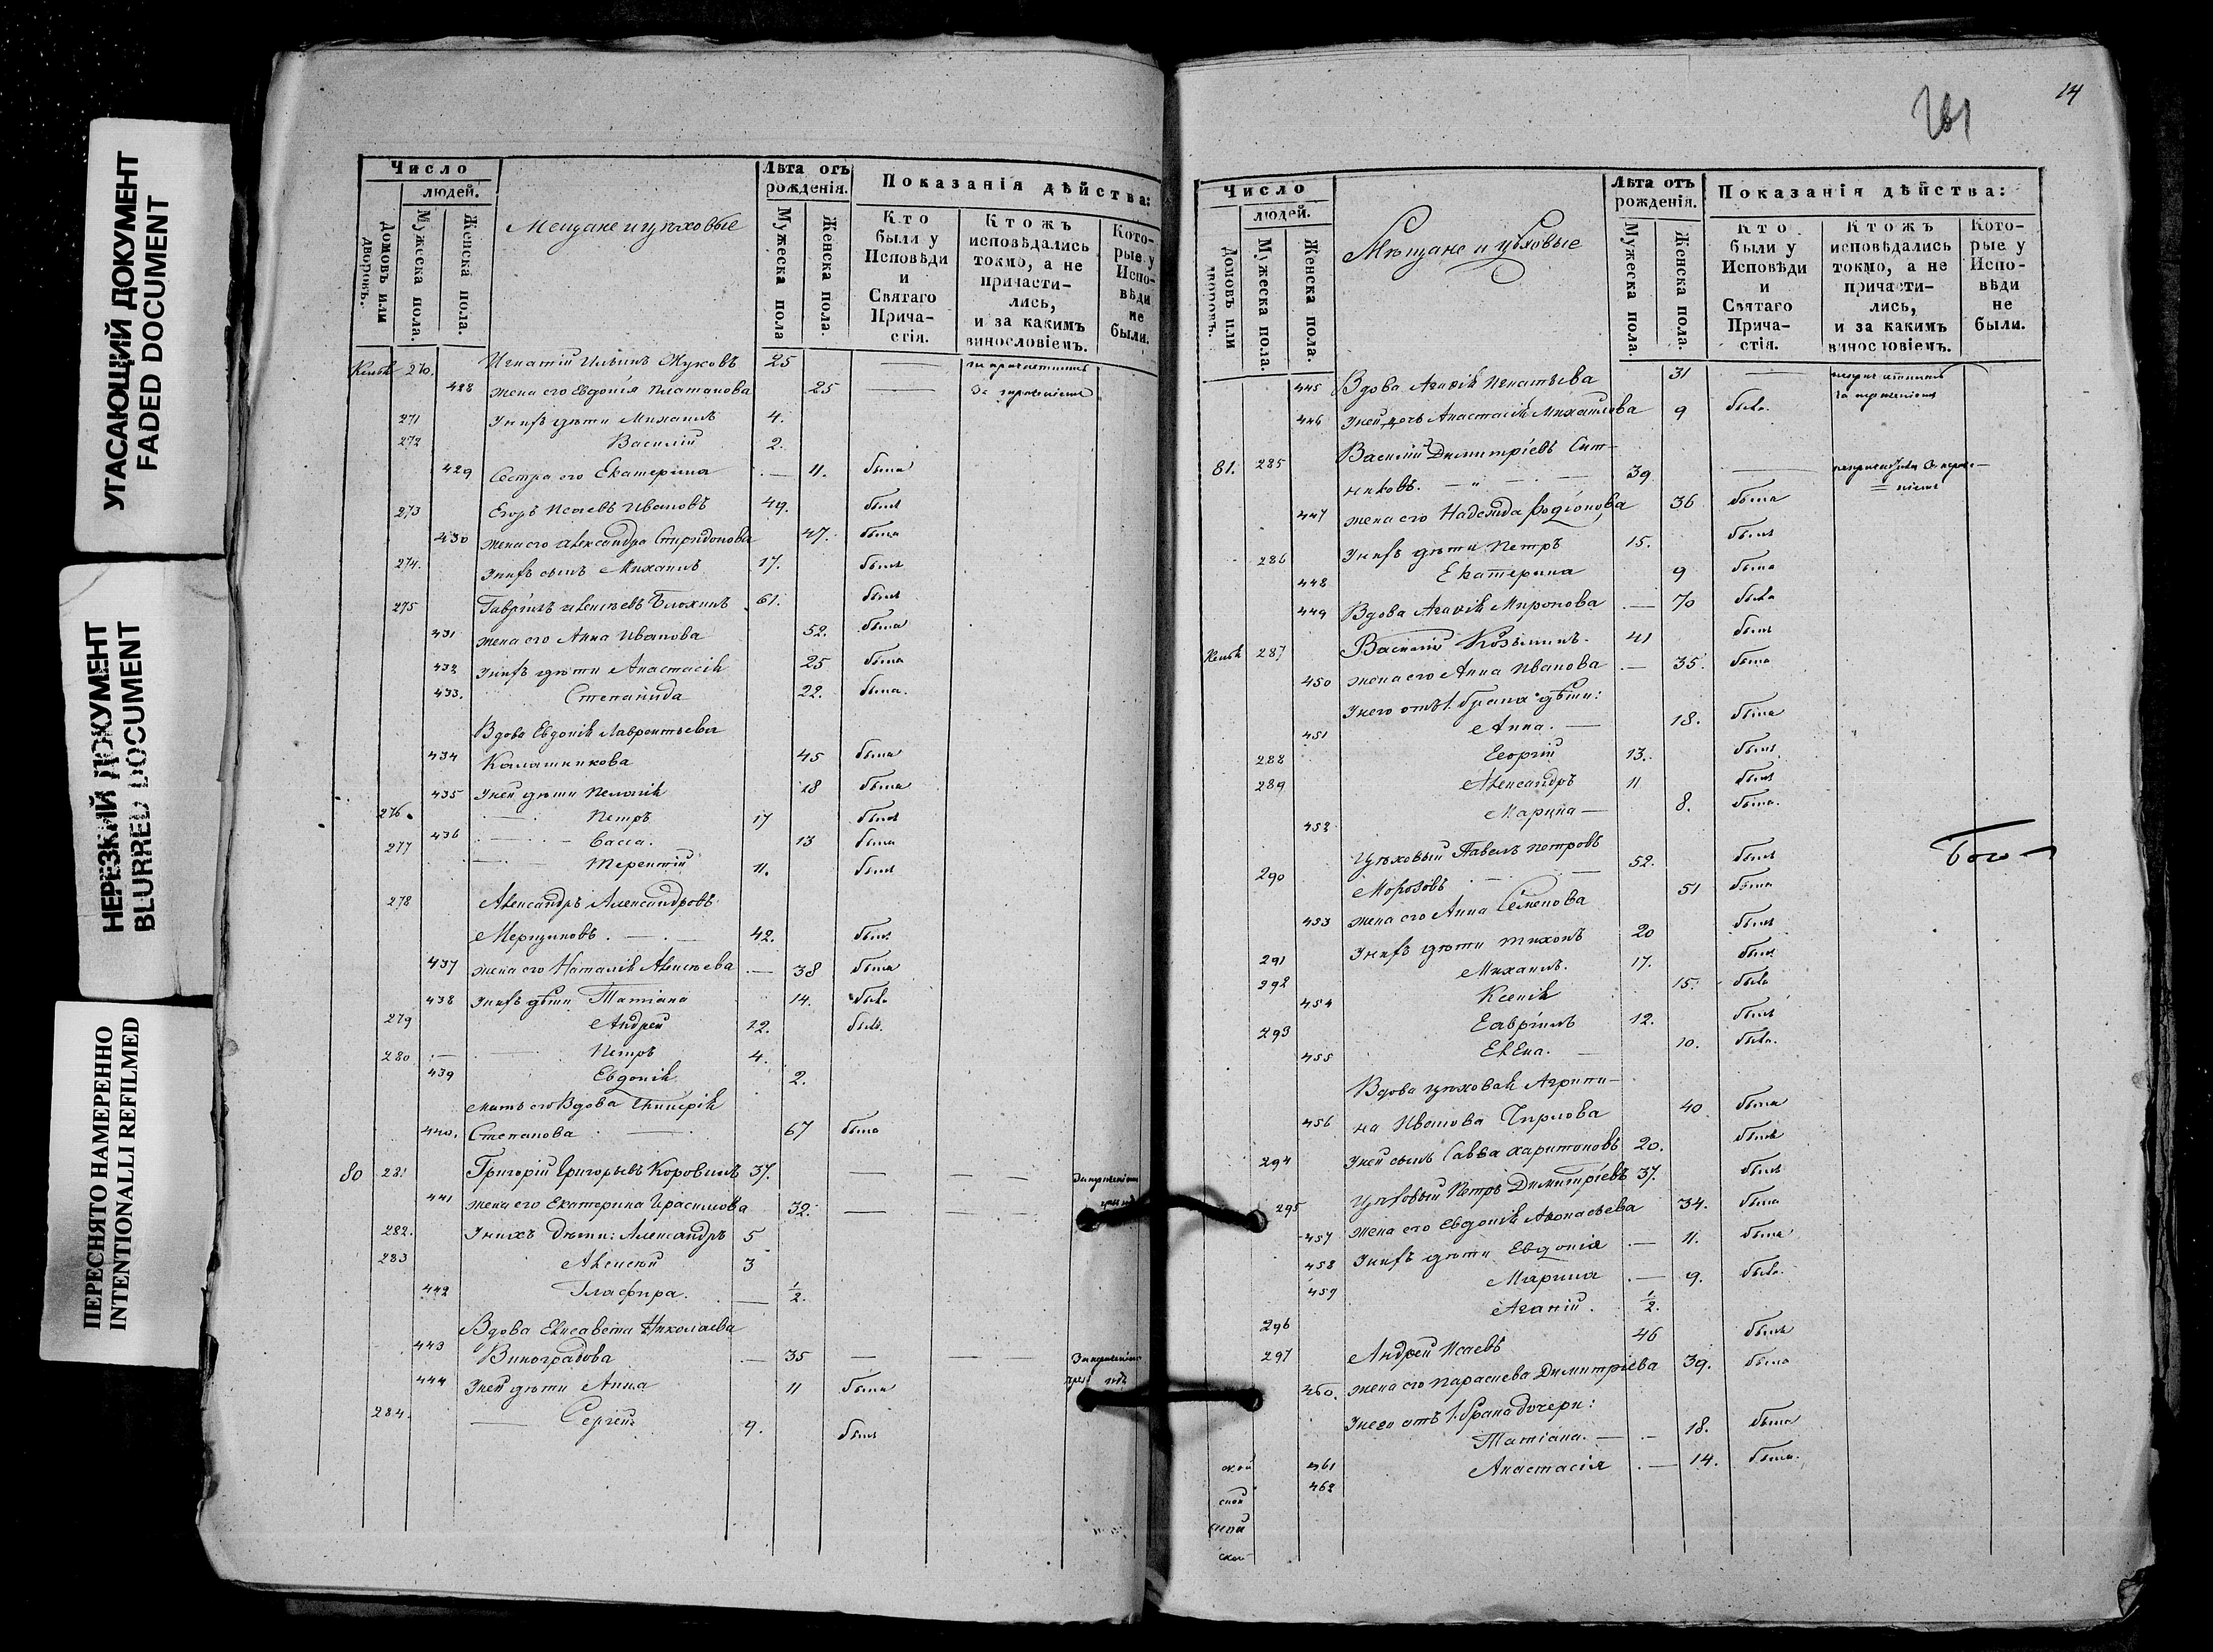 УГАСАЮЩИЙ ДОКУМЕНТ
FADED DOCUMENT
НЕРЕЗКИЙ ДОКУМЕНТ
BLURRED DOCUMENT
ПЕРЕСНЯТО НАМЕРЕННО
INTENTIONALLI REFILMED
Число
людей.
Домовъ или дворовъ.
Мужеска пола.
Женска пола.
Мещане и цѣховые
Лѣта отъ рожденія.
Мужеска пола
Женска пола.
Показанія дѣйства:
Кто были у Исповѣди и Святаго Прича-стія.
Ктожъ исповѣдались токмо, а не причасти-лись, и за какимъ винословіемъ.
Кото-рые у Испо-вѣди не были.
270. Игнатій Ильинъ Жуковъ 25 —
428 жена его Евдокія Платанова 25 —
271 У нихъ дѣти Михаилъ 4.
272 Василій 2.
429 Сестра его Екатерина — 11. была
273 Егоръ Исаевъ Ивановъ 49. былъ
430 жена его Александра Спиридонова 47. была
274. У нихъ сынъ Михаилъ 17. былъ
275 Гавріилъ Алексѣевъ Блохинъ 61. былъ
431 жена его Анна Иванова 52. была
432 У нихъ дѣти Анастасія 25 была
433. Степанида 22. была.
Вдова Евдокія Лаврентьева
434 Калашникова 45 была
435 У ней дѣти Пелагія 18 была
276. Петръ 17 былъ
436 Васса. 13 была
277 Терентій 11. былъ
278 Александръ Александровъ
Мерцаловъ. 42. былъ
437 жена его Наталія Алексѣева — 38 была
438 У нихъ дѣти Татіана 14. была
279 Андрей 12. былъ.
280 Петръ 4.
439 Евдокія 2.
мать его Вдова Гликерія
440. Степанова — 67 была
80 281 Григорій Григорьевъ Коровинъ 37. — —
441 жена его Екатерина Герасимова 32. — —
282. У нихъ Дѣти: Александръ 5
283 Алексѣй 3
442 Глафира. — ½.
Вдова Елисавета Николаева
443 Виноградова — 35 — —
444 У ней дѣти Анна 11 была
284. — Сергій 9. былъ
14
Число
людей.
Домовъ или дворовъ.
Мужеска пола.
Женска пола.
Мещане и цѣховые
Лѣта отъ рожденія.
Мужеска пола.
Женска пола.
Показанія дѣйства:
Кто были у Исповѣди и Святаго Прича-стія.
Ктожъ исповѣдались токмо, а не причасти-лись, и за какимъ винословіемъ.
Кото-рые у Испо-вѣди не были.
445 Вдова Агафія Игнатьева 31 —
446 У ней дочь Анастасія Михаилова 9 была.
81. 285 Василій Димитріевъ Сит-
никовъ. — 39 —
447 жена его Надежда Родіонова 36 была
286 У нихъ дѣти Петръ 15. былъ
448 Екатерина 9 была
449 Вдова Агафія Миронова — 70 была
287 Василій Козьминъ. 41 былъ
450 жена его Анна Иванова — 35. была
У него отъ 1. брака дѣти:
451 Анна. — 18. была
288 Георгій 13. былъ.
289 Александръ 11 былъ
452 Марина — 8. была.
Цѣховый Павелъ Петровъ
290 Морозовъ — 52. былъ
453 жена его Анна Семенова 51 была
291 У нихъ дѣти Тихонъ 20 былъ
292 Михаилъ. 17. былъ
454 Ксенія 15. была
293 Гавріилъ 12. былъ
455 Елена. — 10. была.
Вдова цѣховая Агрипи-
456 на Иванова Чирлова 40 была
294 У ней сынъ Савва Харитоновъ 20. былъ
295 Цеховый Петръ Димитріевъ 37. былъ
457 жена его Евдокія Афонасьева 34. была
458 У нихъ дѣти Евдокія — 11. была
459 Марина — 9. была.
296 Агапій. ½.
297 Андрей Исаевъ 46 былъ
460. жена его Параскева Димитріева 39. была
У него отъ 1. брака дочери:
461 Татіана. — 18. была
462 Анастасія — 14. была.